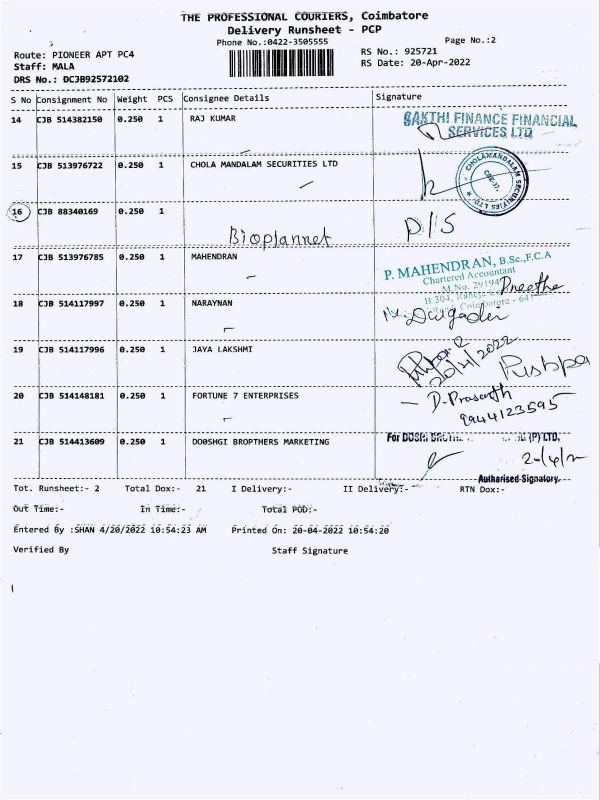 THE PROFESSIONAL COURIERS, Coimbatore
Delivery Runsheet - PCP
Phone No.:0422-3505555
Page No.:2
Route: PIONEER APT PC4
RS No.: 925721
Staff: MALA
RS Date: 20-Apr-2022
DRS No.: DCJB92572102
S No Consignment No Weight PCS Consignee Details Signature
14 CJB 514382150 0.250 1 RAJ KUMAR
SAKTHI FINANCE FINANCIAL
SERVICES LTD
15 CJB 513976722 0.250 1 CHOLA MANDALAM SECURITIES LTD
CHOLAMANDALAM SECURITIES LTD
16 CJB 88340169 0.250 1
Bioplannet
D/S
17 CJB 513976785 0.250 1 MAHENDRAN
P. MAHENDRAN, B.Sc.,F.C.A
Chartered Accountant
M.No. 29194
Preetha
18 CJB 514117997 0.250 1 NARAYNAN
19 CJB 514117996 0.250 1 JAYA LAKSHMI
20/4/2022
Pushpa
20 CJB 514148181 0.250 1 FORTUNE 7 ENTERPRISES
D. Prasanth
9944123595
21 CJB 514413609 0.250 1 DO0SHGI BROPTHERS MARKETING
(P) LTD.
Authorised Signatory
Tot. Runsheet:- 2 Total Dox:- 21 I Delivery:- II Delivery:- RTN Dox:-
Out Time:- In Time:- Total POD:-
Entered By :SHAN 4/20/2022 10:54:23 AM Printed On: 20-04-2022 10:54:20
Verified By Staff Signature